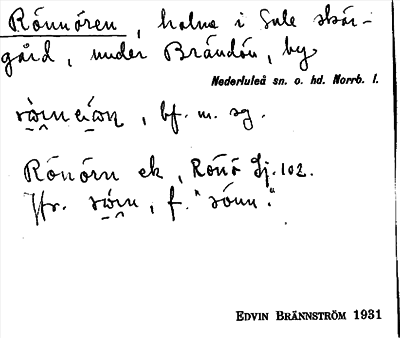 Rönnören, holme i Lule skär-
gård, under Brändön, by
Nederluleå sn. o. hd. Norrb. l.
, bf. m. sg.
Rönörn ek, Rönö Gj. 102.
Jfr. , f. "rönn".
EDVIN BRÄNNSTRÖM 1931